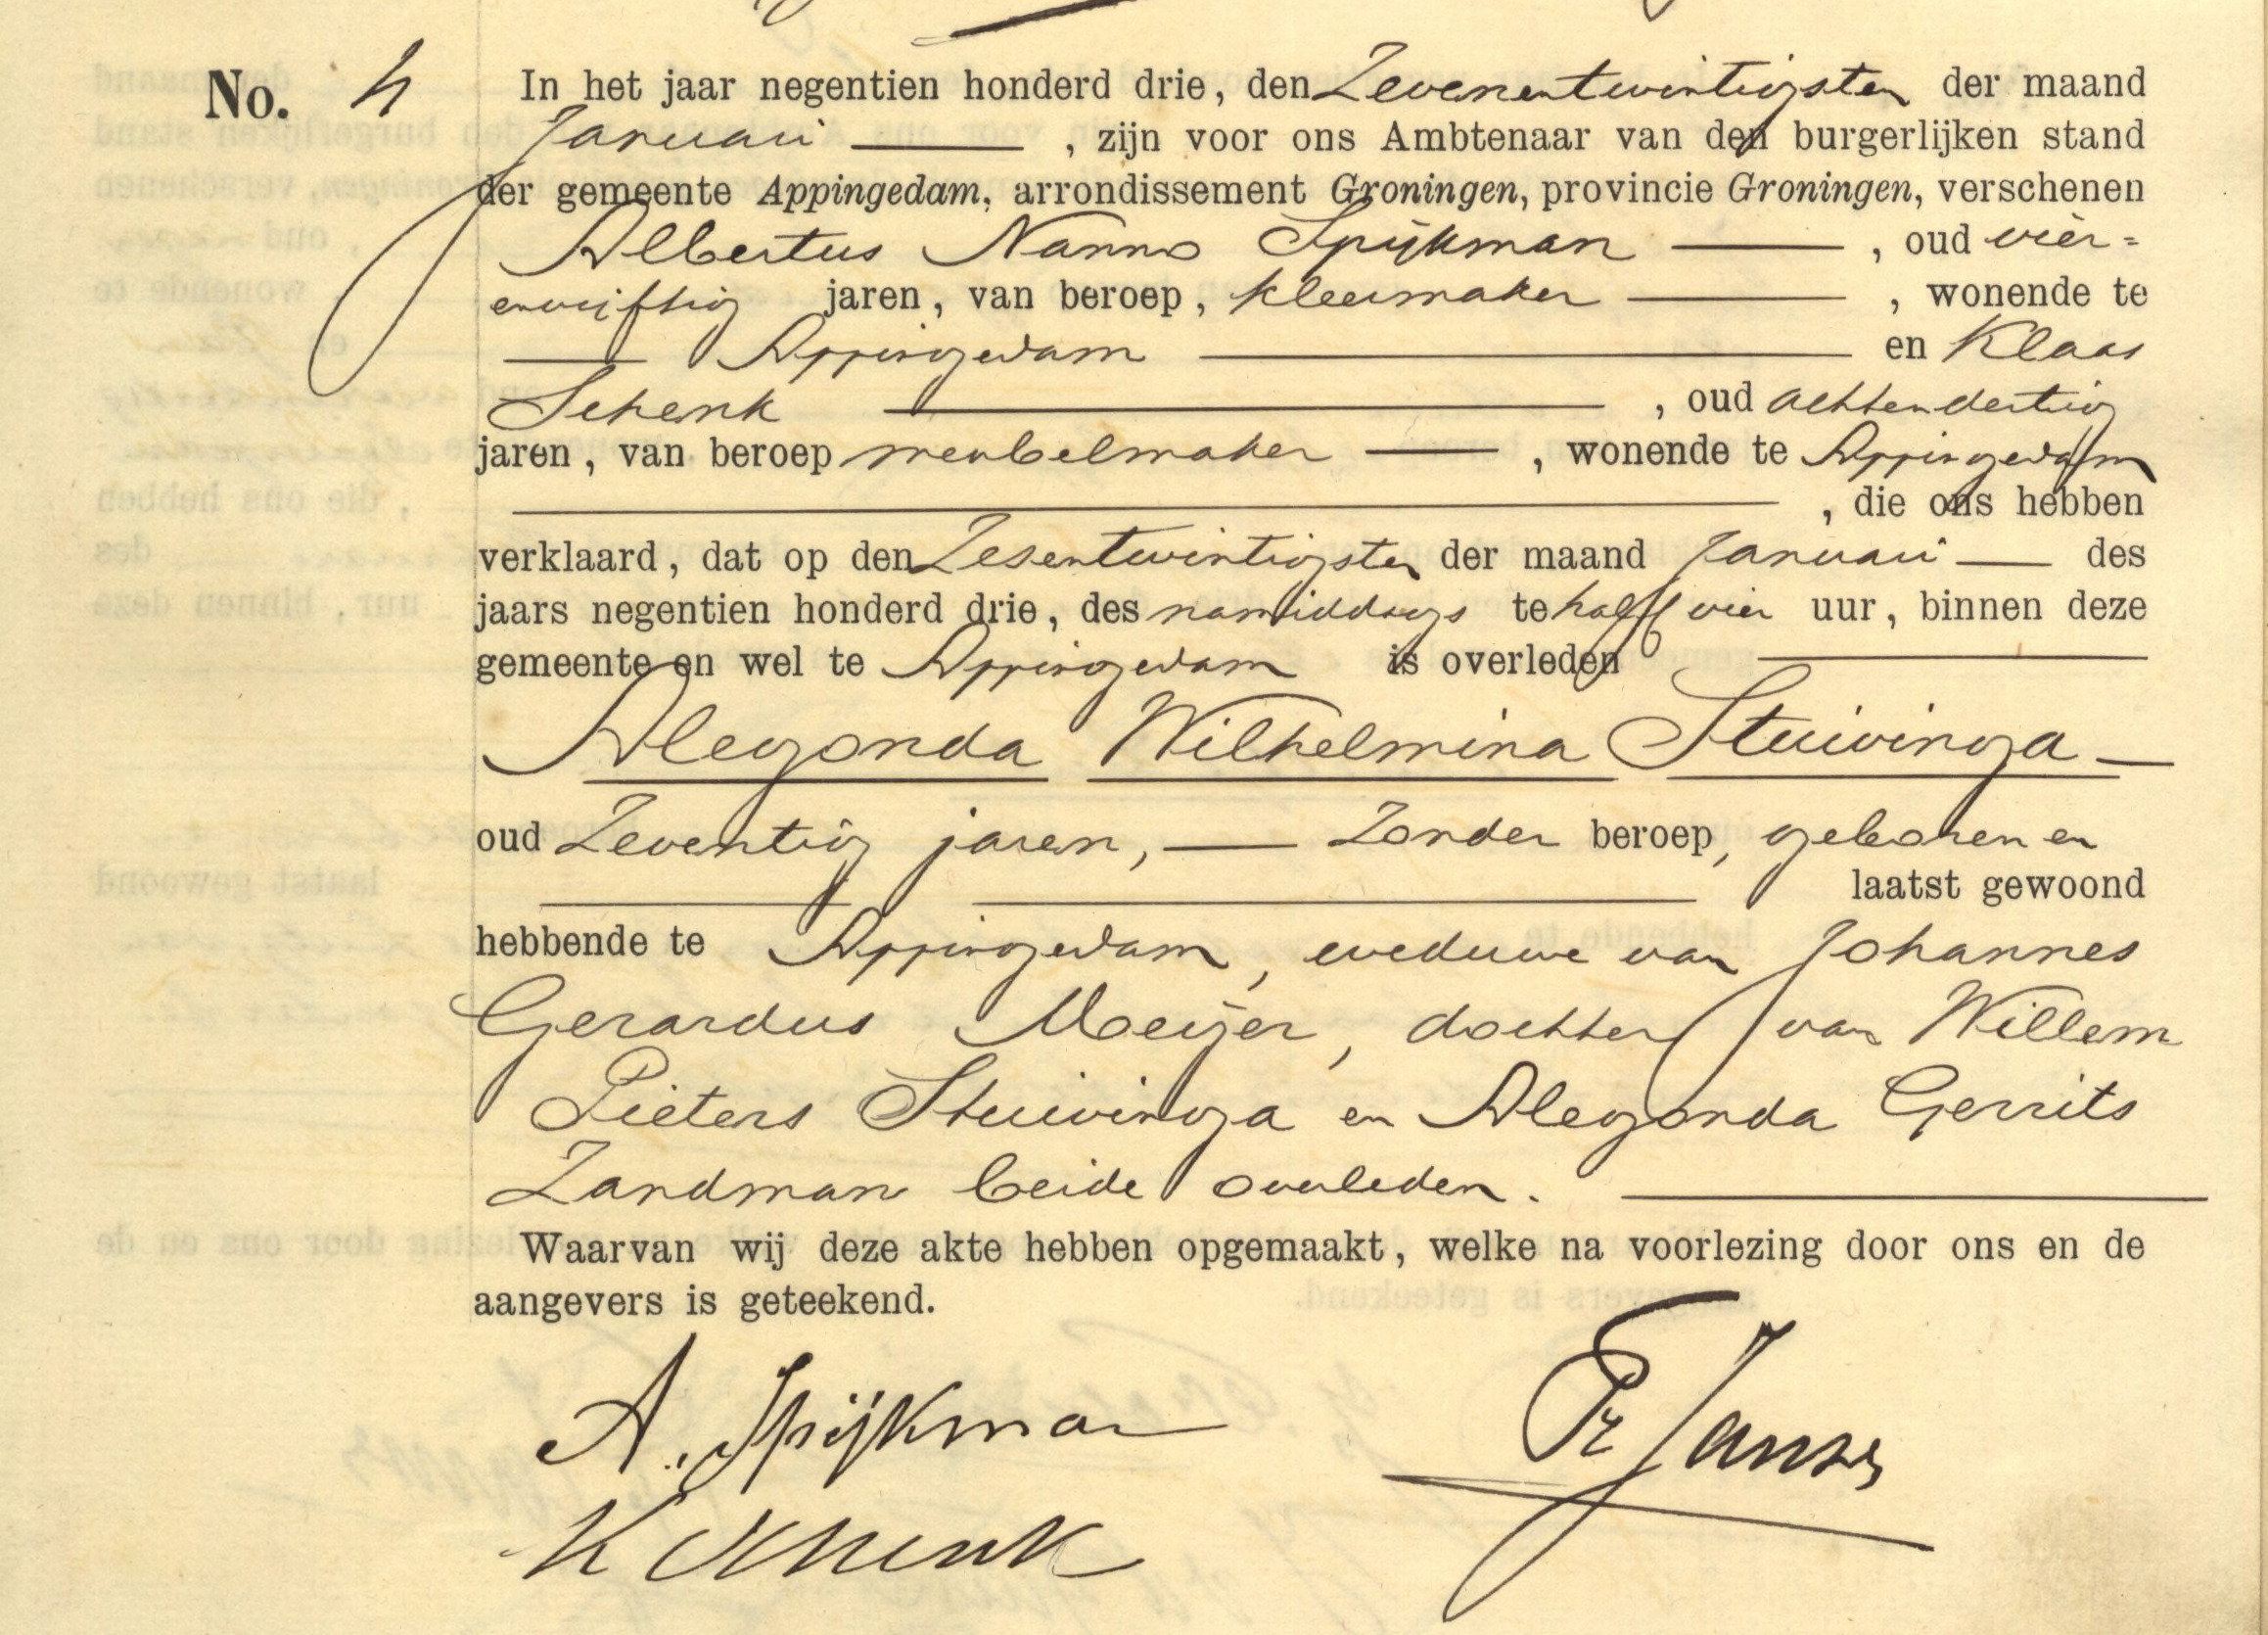 No. 4
In het jaar negentien honderd drie, den Zevenentwintigsten der maand
Januari , zijn voor ons Ambtenaar van den burgerlijken stand
der gemeente Appingedam, arrondissement Groningen, provincie Groningen, verschenen
Albertus Nanno Spijkman , oud vier=
envijftig jaren, van beroep, kleermaker , wonende te
Appingedam en Klaas
Schenk , oud achtendertig
jaren, van beroep meubelmaker , wonende te Appingedam
, die ons hebben
verklaard, dat op den Zesentwintigsten der maand Januari des
jaars negentien honderd drie, des namiddags te half vier uur, binnen deze
gemeente en wel te Appingedam is overleden
Alegonda Wilhelmina Stuivinga
oud Zeventig jaren, zonder beroep, geboren en
laatst gewoond
hebbende te Appingedam, weduwe van Johannes
Gerardus Meijer, dochter van Willem
Pieters Stuivinga en Alegonda Gerrits
Zandman beide overleden.
Waarvan wij deze akte hebben opgemaakt, welke na voorlezing door ons en de
aangevers is geteekend.
A. Spijkman
Pr Jansen
K Schenk